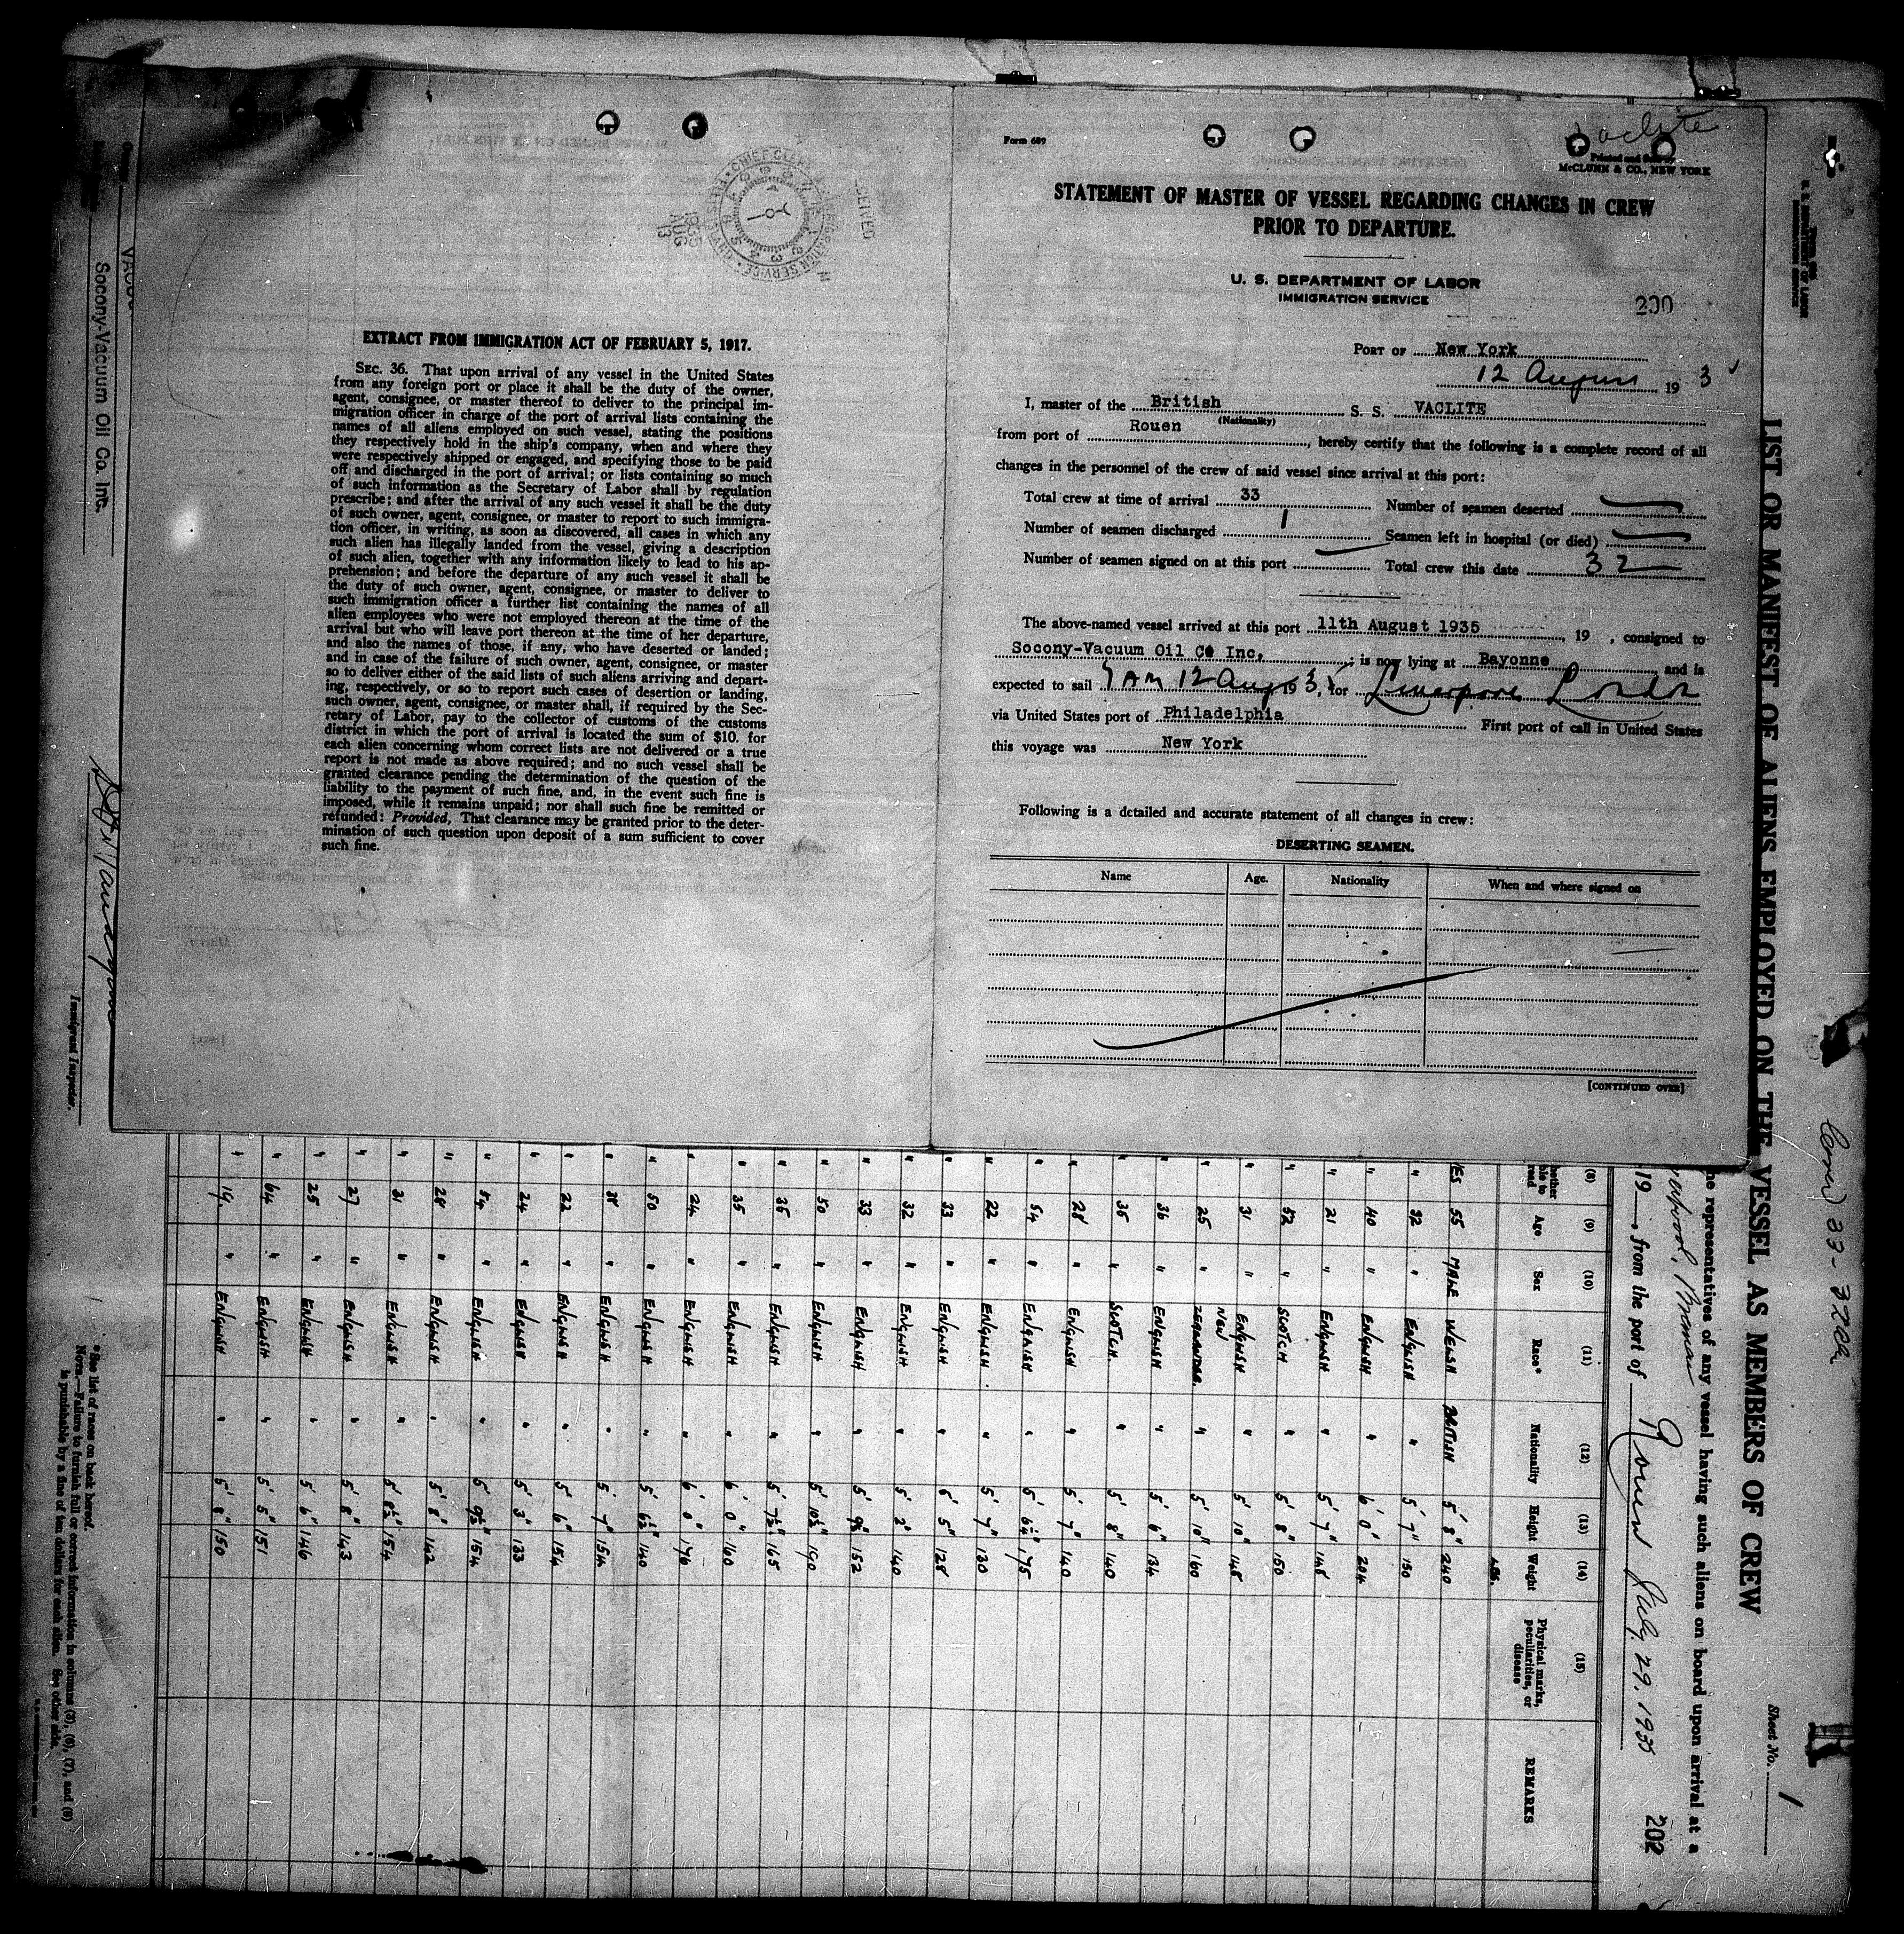 Vaclite
Form 689
Printed and Sold by
McCLUNN & CO., NEW YORK
STATEMENT OF MASTER OF VESSEL REGARDING CHANGES IN CREW
PRIOR TO DEPARTURE.
U. S. DEPARTMENT OF LABOR
IMMIGRATION SERVICE
200
PORT OF New York
12 August 19 3
I, master of the British S. S. VACLITE
(Nationality)
from port of Rouen, hereby certify that the following is a complete record of all
changes in the personnel of the crew of said vessel since arrival at this port:
Total crew at time of arrival 33 Number of seamen deserted —
Number of seamen discharged 1 Seamen left in hospital (or died) —
Number of seamen signed on at this port — Total crew this date 32
The above-named vessel arrived at this port 11th August 1935 19 , consigned to
Socony-Vacuum Oil Co Inc, ; is now lying at Bayonne and is
expected to sail 7 AM 12 Aug 193 , for Liverpool London
via United States port of Philadelphia First port of call in United States
this voyage was New York
Following is a detailed and accurate statement of all changes in crew:
DESERTING SEAMEN.
Name Age. Nationality When and where signed on
[CONTINUED OVER]
RECEIVED
1935
AUG
13
EXTRACT FROM IMMIGRATION ACT OF FEBRUARY 5, 1917.
SEC. 36. That upon arrival of any vessel in the United States
from any foreign port or place it shall be the duty of the owner,
agent, consignee, or master thereof to deliver to the principal im-
migration officer in charge of the port of arrival lists containing the
names of all aliens employed on such vessel, stating the positions
they respectively hold in the ship's company, when and where they
were respectively shipped or engaged, and specifying those to be paid
off and discharged in the port of arrival; or lists containing so much
of such information as the Secretary of Labor shall by regulation
prescribe; and after the arrival of any such vessel it shall be the duty
of such owner, agent, consignee, or master to report to such immigra-
tion officer, in writing, as soon as discovered, all cases in which any
such alien has illegally landed from the vessel, giving a description
of such alien, together with any information likely to lead to his ap-
prehension; and before the departure of any such vessel it shall be
the duty of such owner, agent, consignee, or master to deliver to
such immigration officer a further list containing the names of all
alien employees who were not employed thereon at the time of the
arrival but who will leave port thereon at the time of her departure,
and also the names of those, if any, who have deserted or landed;
and in case of the failure of such owner, agent, consignee, or master
so to deliver either of the said lists of such aliens arriving and depart-
ing, respectively, or so to report such cases of desertion or landing,
such owner, agent, consignee, or master shall, if required by the Sec-
retary of Labor, pay to the collector of customs of the customs
district in which the port of arrival is located the sum of $10. for
each alien concerning whom correct lists are not delivered or a true
report is not made as above required; and no such vessel shall be
granted clearance pending the determination of the question of the
liability to the payment of such fine, and, in the event such fine is
imposed, while it remains unpaid; nor shall such fine be remitted or
refunded: Provided, That clearance may be granted prior to the deter-
mination of such question upon deposit of a sum sufficient to cover
such fine.
LIST OR MANIFEST OF ALIENS EMPLOYED ON THE VESSEL AS MEMBERS OF CREW
Sheet No. 1
he representatives of any vessel having such aliens on board upon arrival at a
19 , from the port of Rouen July, 29, 1935
202
(8) (9) (10) (11) (12) (13) (14) (15)
Age Sex Race* Nationality Height Weight Physical marks, peculiarities, or disease REMARKS
LBS.
YES 55 MALE WELSH BRITISH 5' 8" 240
" 32 " ENGLISH " 5' 7" 150
" 40 " ENGLISH " 6' 0" 204
" 21 " ENGLISH " 5' 7" 146
" 52 " SCOTCH " 5' 8" 150
" 31 " ENGLISH " 5' 10" 148
" 25 " NEW ZEALANDER. " 5' 10" 160
" 36 " ENGLISH " 5' 6" 134
" 35 " SCOTCH. " 5' 8" 140
" 28 " ENGLISH " 5' 7" 140
" 54 " ENGLISH " 5' 6½" 175
" 22 " ENGLISH " 5' 7" 130
" 33 " ENGLISH " 5' 5" 128
" 32 " ENGLISH " 5' 2" 140
" 33 " ENGLISH " 5' 9½" 152
" 50 " ENGLISH " 5' 10½" 190
" 35 " ENGLISH " 5' 7½" 165
" 35 " ENGLISH " 6' 0" 160
" 24 " ENGLISH " 6' 0" 176
" 50 " ENGLISH " 5' 6½" 140
" 38 " ENGLISH " 5' 7" 154
" 22 " ENGLISH " 5' 6" 154
" 24 " ENGLISH " 5' 3" 133
" 54 " ENGLISH " 5' 9½" 154
" 28 " ENGLISH " 5' 8" 142
" 31 " ENGLISH " 5' 8½" 154
" 27 " ENGLISH " 5' 8" 143
" 25 " ENGLISH " 5' 6" 146
" 64 " ENGLISH " 5' 5" 151
" 19. " ENGLISH " 5' 8" 150
* See list of races on back hereof.
NOTE.—Failure to furnish full or correct information in columns (3), (6), (7), and (8)
is punishable by a fine of ten dollars for each alien. See other side.
Socony-Vacuum Oil Co. Inc.
Immigrant Inspector.